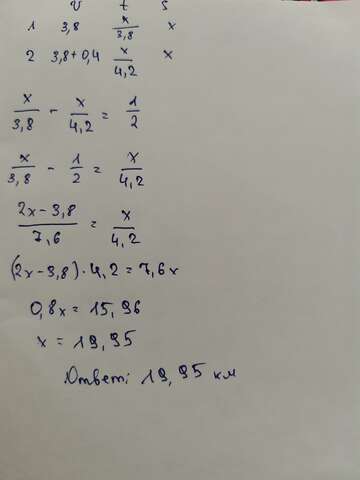 v t s
1 3,8 x/3,8 x
2 3,8+0,4 x/4,2 x
x/3,8 - x/4,2 = 1/2
x/3,8 - 1/2 = x/4,2
2x-3,8/7,6 = x/4,2
(2x-3,8)·4,2=7,6x
0,8x=15,96
x=19,95
Ответ: 19,95 км